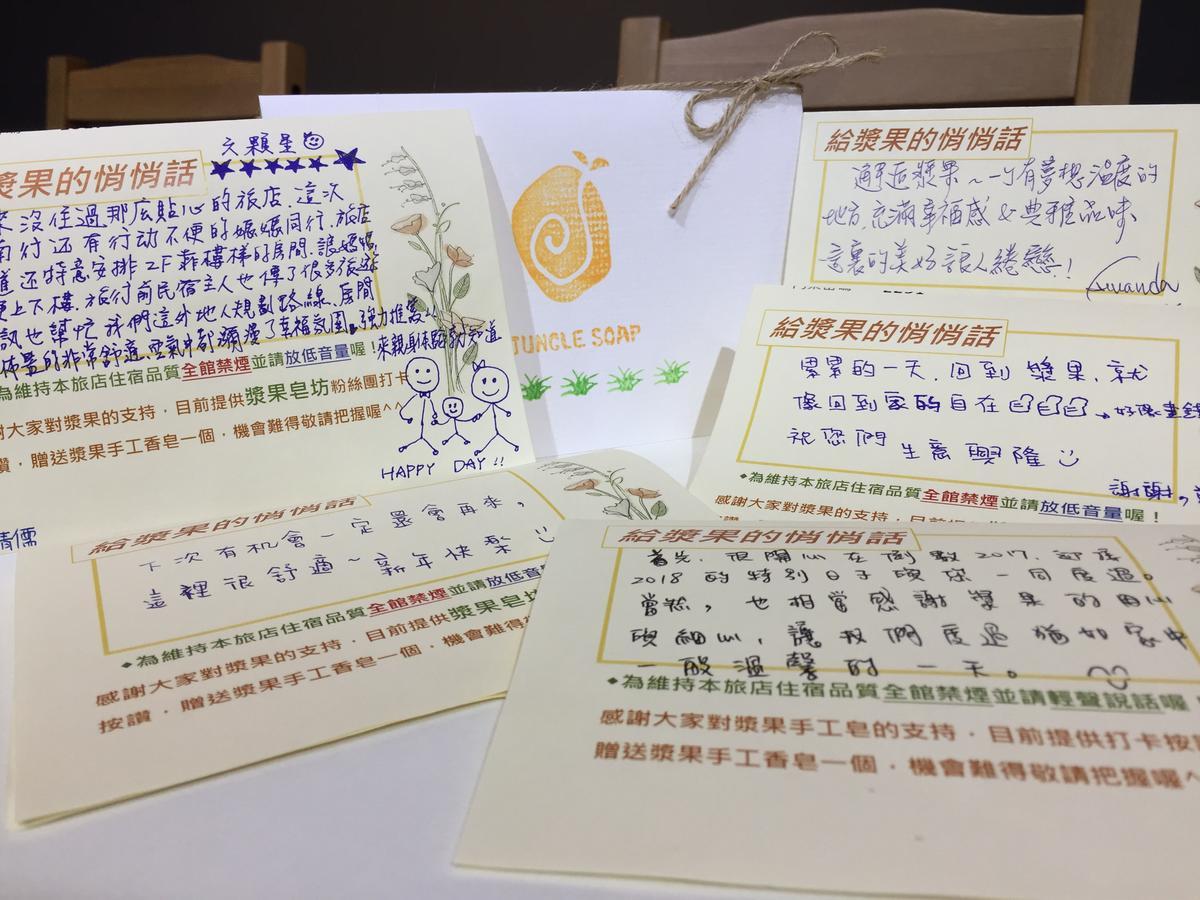 六顆星
漿果的悄悄話
來沒住過那広貼心的旅店.這次
南行还有行动不便的媽媽同行.旅店
道还特意安排2F
上下樓.旅行前民宿主人也傳了很多旅遊
訊也幫忙我們這外地人規劃路線.房間
佈置的非常舒適.空氣中都瀰漫了幸福氛圍.強力推薦
來親身体驗就知道
為維持本旅店住宿品質全館禁煙並請放低音量喔!
謝大家對漿果的支持，目前提供漿果皂坊粉絲團打卡
讚，贈送漿果手工香皂一個，機會難得敬請把握喔^^
HAPPY DAY!!
JUNGLE SOAP
給漿果的悄悄話
邂逅漿果~一個有夢想溫度的
地方.充滿幸福感&典雅品味
這裏的美好讓人綣戀!
給漿果的悄悄話
累累的一天.回到漿果.就
像回到家的自在
好像畫錯
祝您們生意興隆
謝謝,
◆為維持本旅店住宿品質全館禁煙並請放低音量喔!
感謝大家對漿果的支持，目前提供
給漿果的悄悄話
下次有机會一定還會再來,
這裡很舒適~新年快樂
◆為維持本旅店住宿品質全館禁煙並請放低音
感謝大家對漿果的支持，目前提供漿果皂坊
按讚，贈送漿果手工香皂一個，機會難得
給漿果的悄悄話
首先,很開心在倒數2017.迎接
2018的特別日子與您一同度過。
當然,也相當感謝漿果的用心
與細心,讓我們度過猶如家中
一般溫馨的一天。
◆為維持本旅店住宿品質全館禁煙並請輕聲說話喔
感謝大家對漿果手工皂的支持，目前提供打卡按
贈送漿果手工香皂一個，機會難得敬請把握喔^